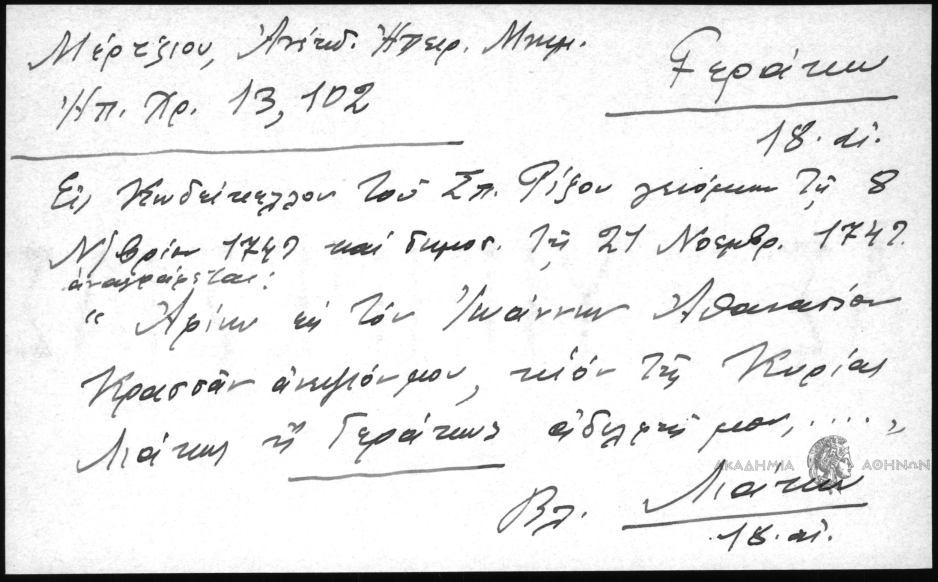 Μέρτζιου, Ἀνέκδ. Ἠπειρ. Μνημ.
Γεράκω
Ἠπ. Χρ. 13, 102
18. αἰ.
Εἰς Κωδείκελλον τοῦ Σπ. Ρίζου γενόμενον τῇ 8
Ν/βρίου 1747 καί δημοσ. τῇ 21 Νοεμβρ. 1747.
ἀναγράφεται:
"Ἀφίνω εἰς τόν Ἰωάννην Ἀθανασίου
Κρασσᾶν ἀνεψιόν μου, υἱόν τῆς Κυρίας
Λιάκως ἤ Γεράκως ἀδελφῆς μου, ....„
ΑΚΑΔΗΜΙΑ ΑΘΗΝΩΝ
Βλ. Λιάκω
18. αἰ.